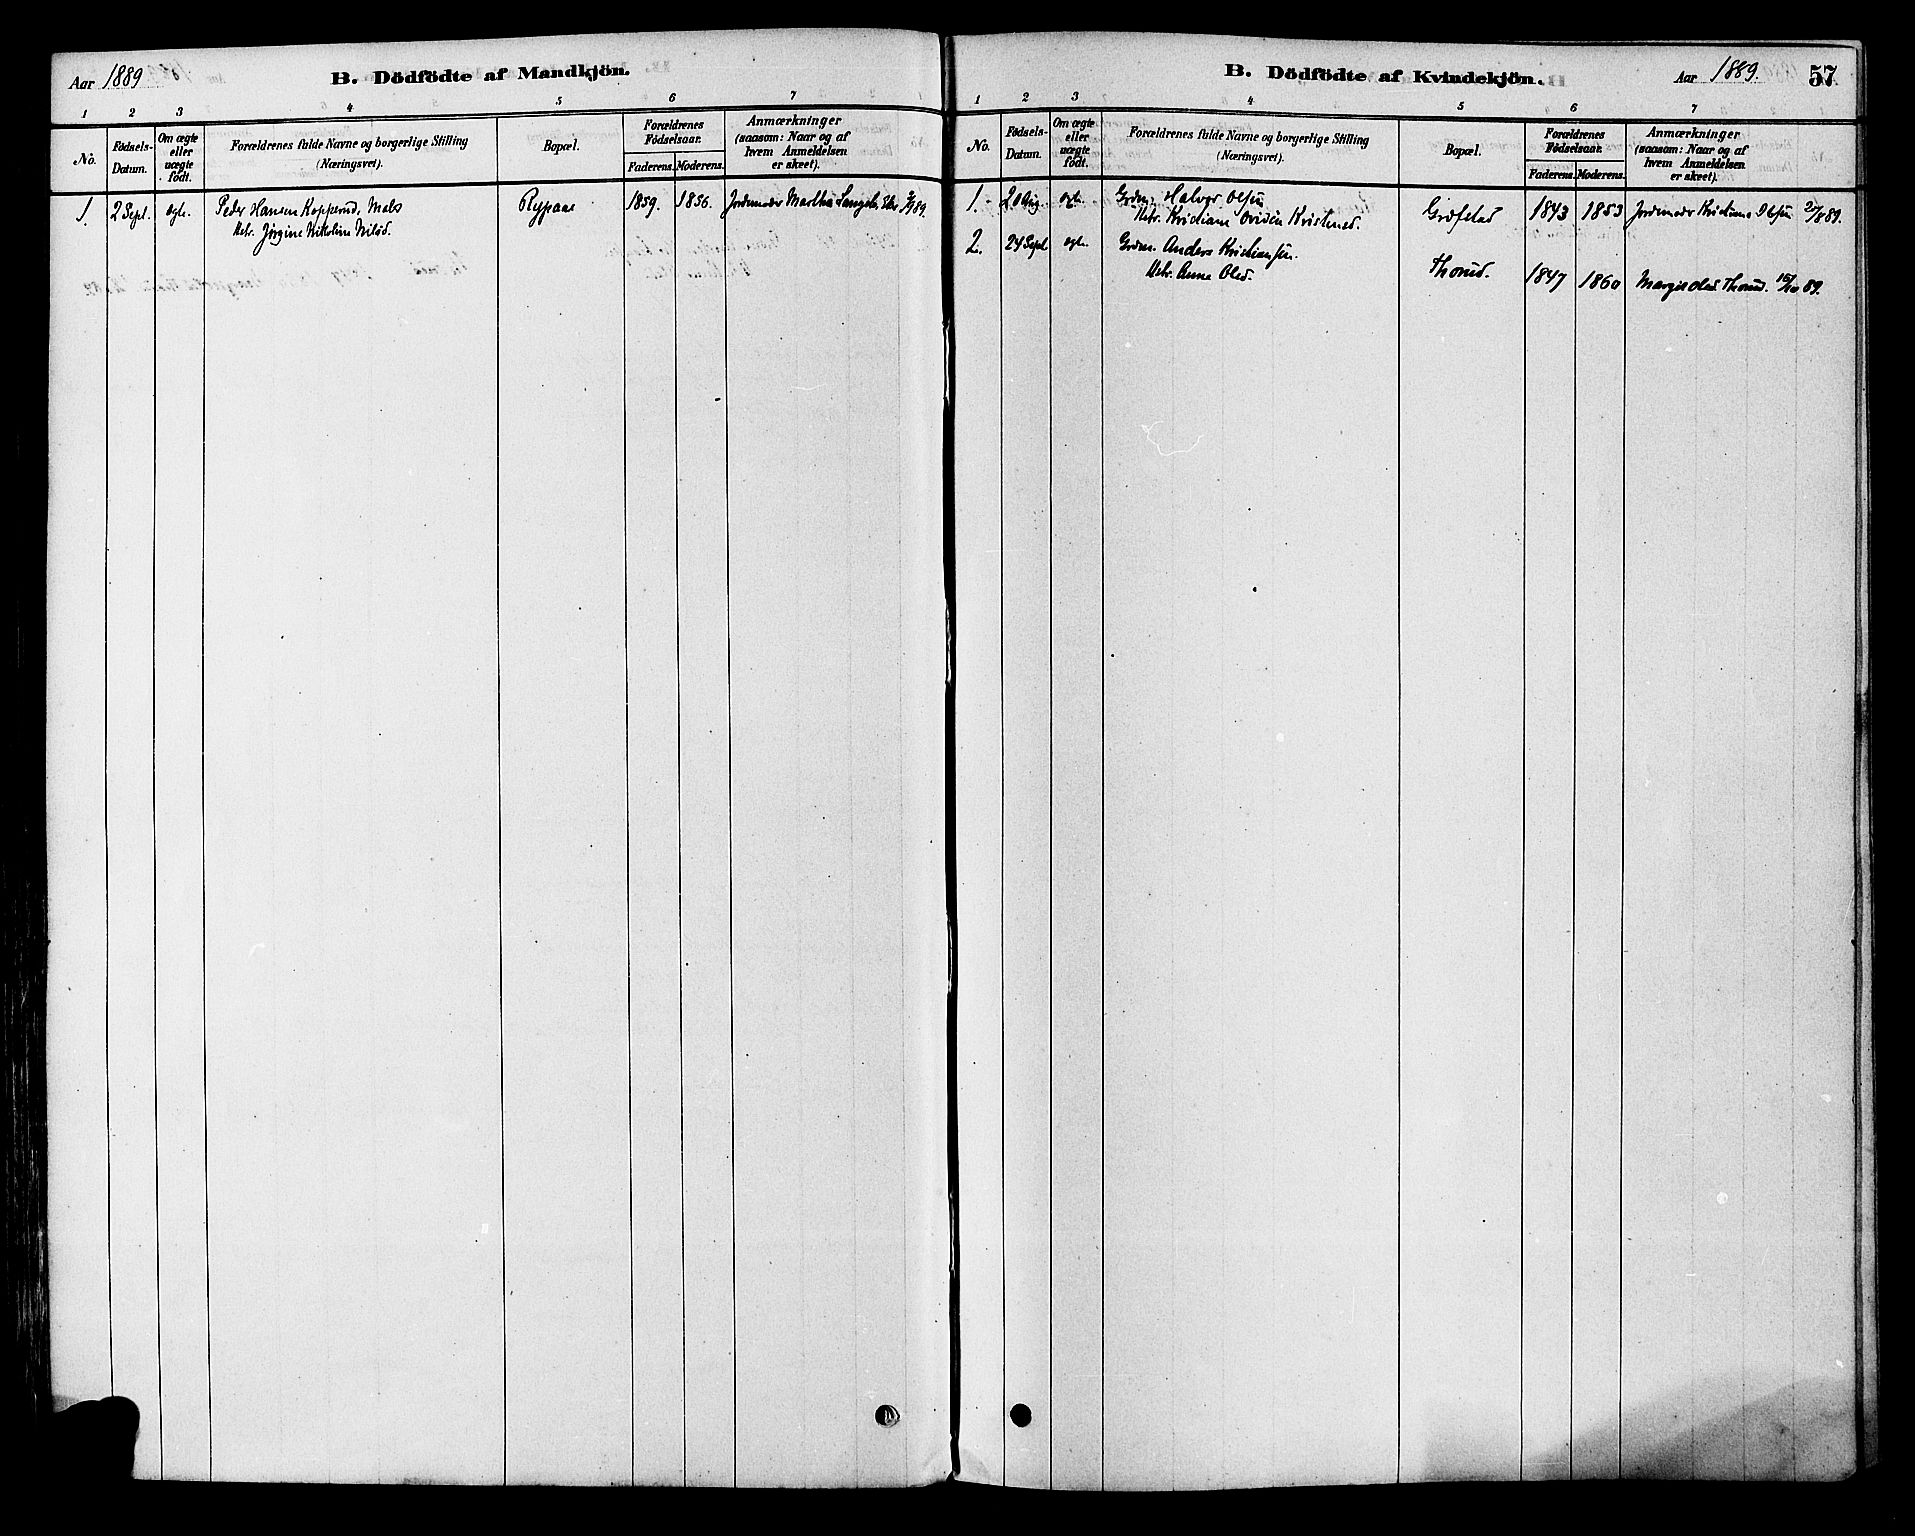 Aar 1889
B. Dödfödte af Mandkjön.
1 2 3 4 5 6 7
No.
Födsels-
Datum.
Om ægte
eller
uægte
født.
Forældrenes fulde Navne og borgerlige Stilling
(Næringsvei).
Bopæl.
Forældrenes
Födselsaar.
Faderens. Moderens.
Anmærkninger
(saasom: Naar og af
hvem Anmeldelsen
er skeet).
1. 2 Sept. ægte. Peder Hansen Kopperud, 1859. 1856. Jordemoder Marthe 89.
Jørgine Nikoline Nilsd.
B. Dödfödte af Kvindekjön.
Aar 1889.
57
1 2 3 4 5 6 7
No.
Födsels-
Datum.
Om ægte
eller
uægte
født.
Forældrenes fulde Navne og borgerlige Stilling
(Næringsvei).
Bopæl.
Forældrenes
Födselsaar.
Faderens. Moderens.
Anmærkninger
(saasom: Naar og af
hvem Anmeldelsen
er skeet).
1. Aug. ægte. Grdm. Halvor Olsen
Kristiane Kristensd. Grefstad 1843 1853 Jordemoder Kristiane Olsen 89.
2. 24 Sept ægte. Grdm. Anders Kristiansen.
Anna Olsd. Thorud. 1847 1860 Margit Olsd. Thorud. 15/10 89.